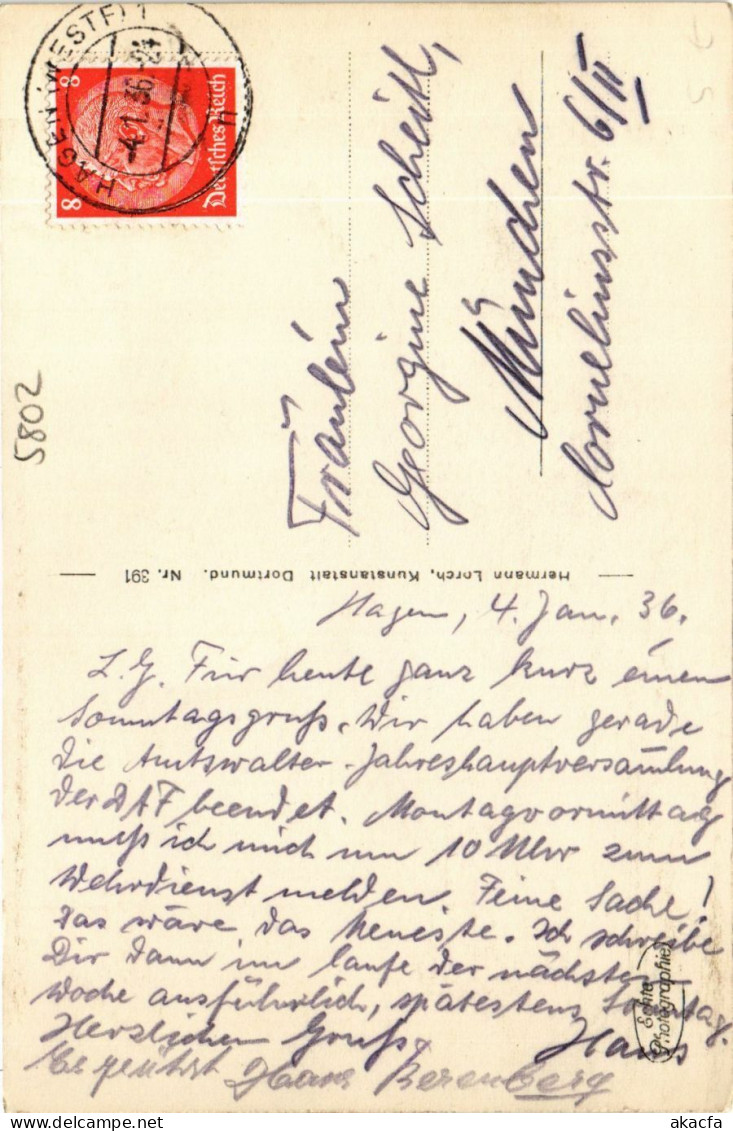 HAGEN (WESTF) 1
-4.1.36.-24
H
8 8
Deutsches Reich
Fräulein
Georgine Scheitl,
München
Corneliusstr. 6/II
5802
Hermann Lorch, Kunstanstalt Dortmund. Nr. 391
Hagen, 4. Jan. 36.
L.G. Für heute ganz kurz einen
Sonntagsgruß. Wir haben gerade
die Amtswalter-Jahreshauptversam̄lung
der DAF beendet. Montagvormittag
muß ich mich um 10 Uhr zum
Wehrdienst melden. Feine Sache!
Das wäre das Neueste. Ich schreibe
Dir dann im laufe der nächsten
Woche ausführlich, spätestens Sonntag.
Herzlichen Gruß Hans
Hans Berenberg
Echte
Photographie
akacfa
akacfa.com